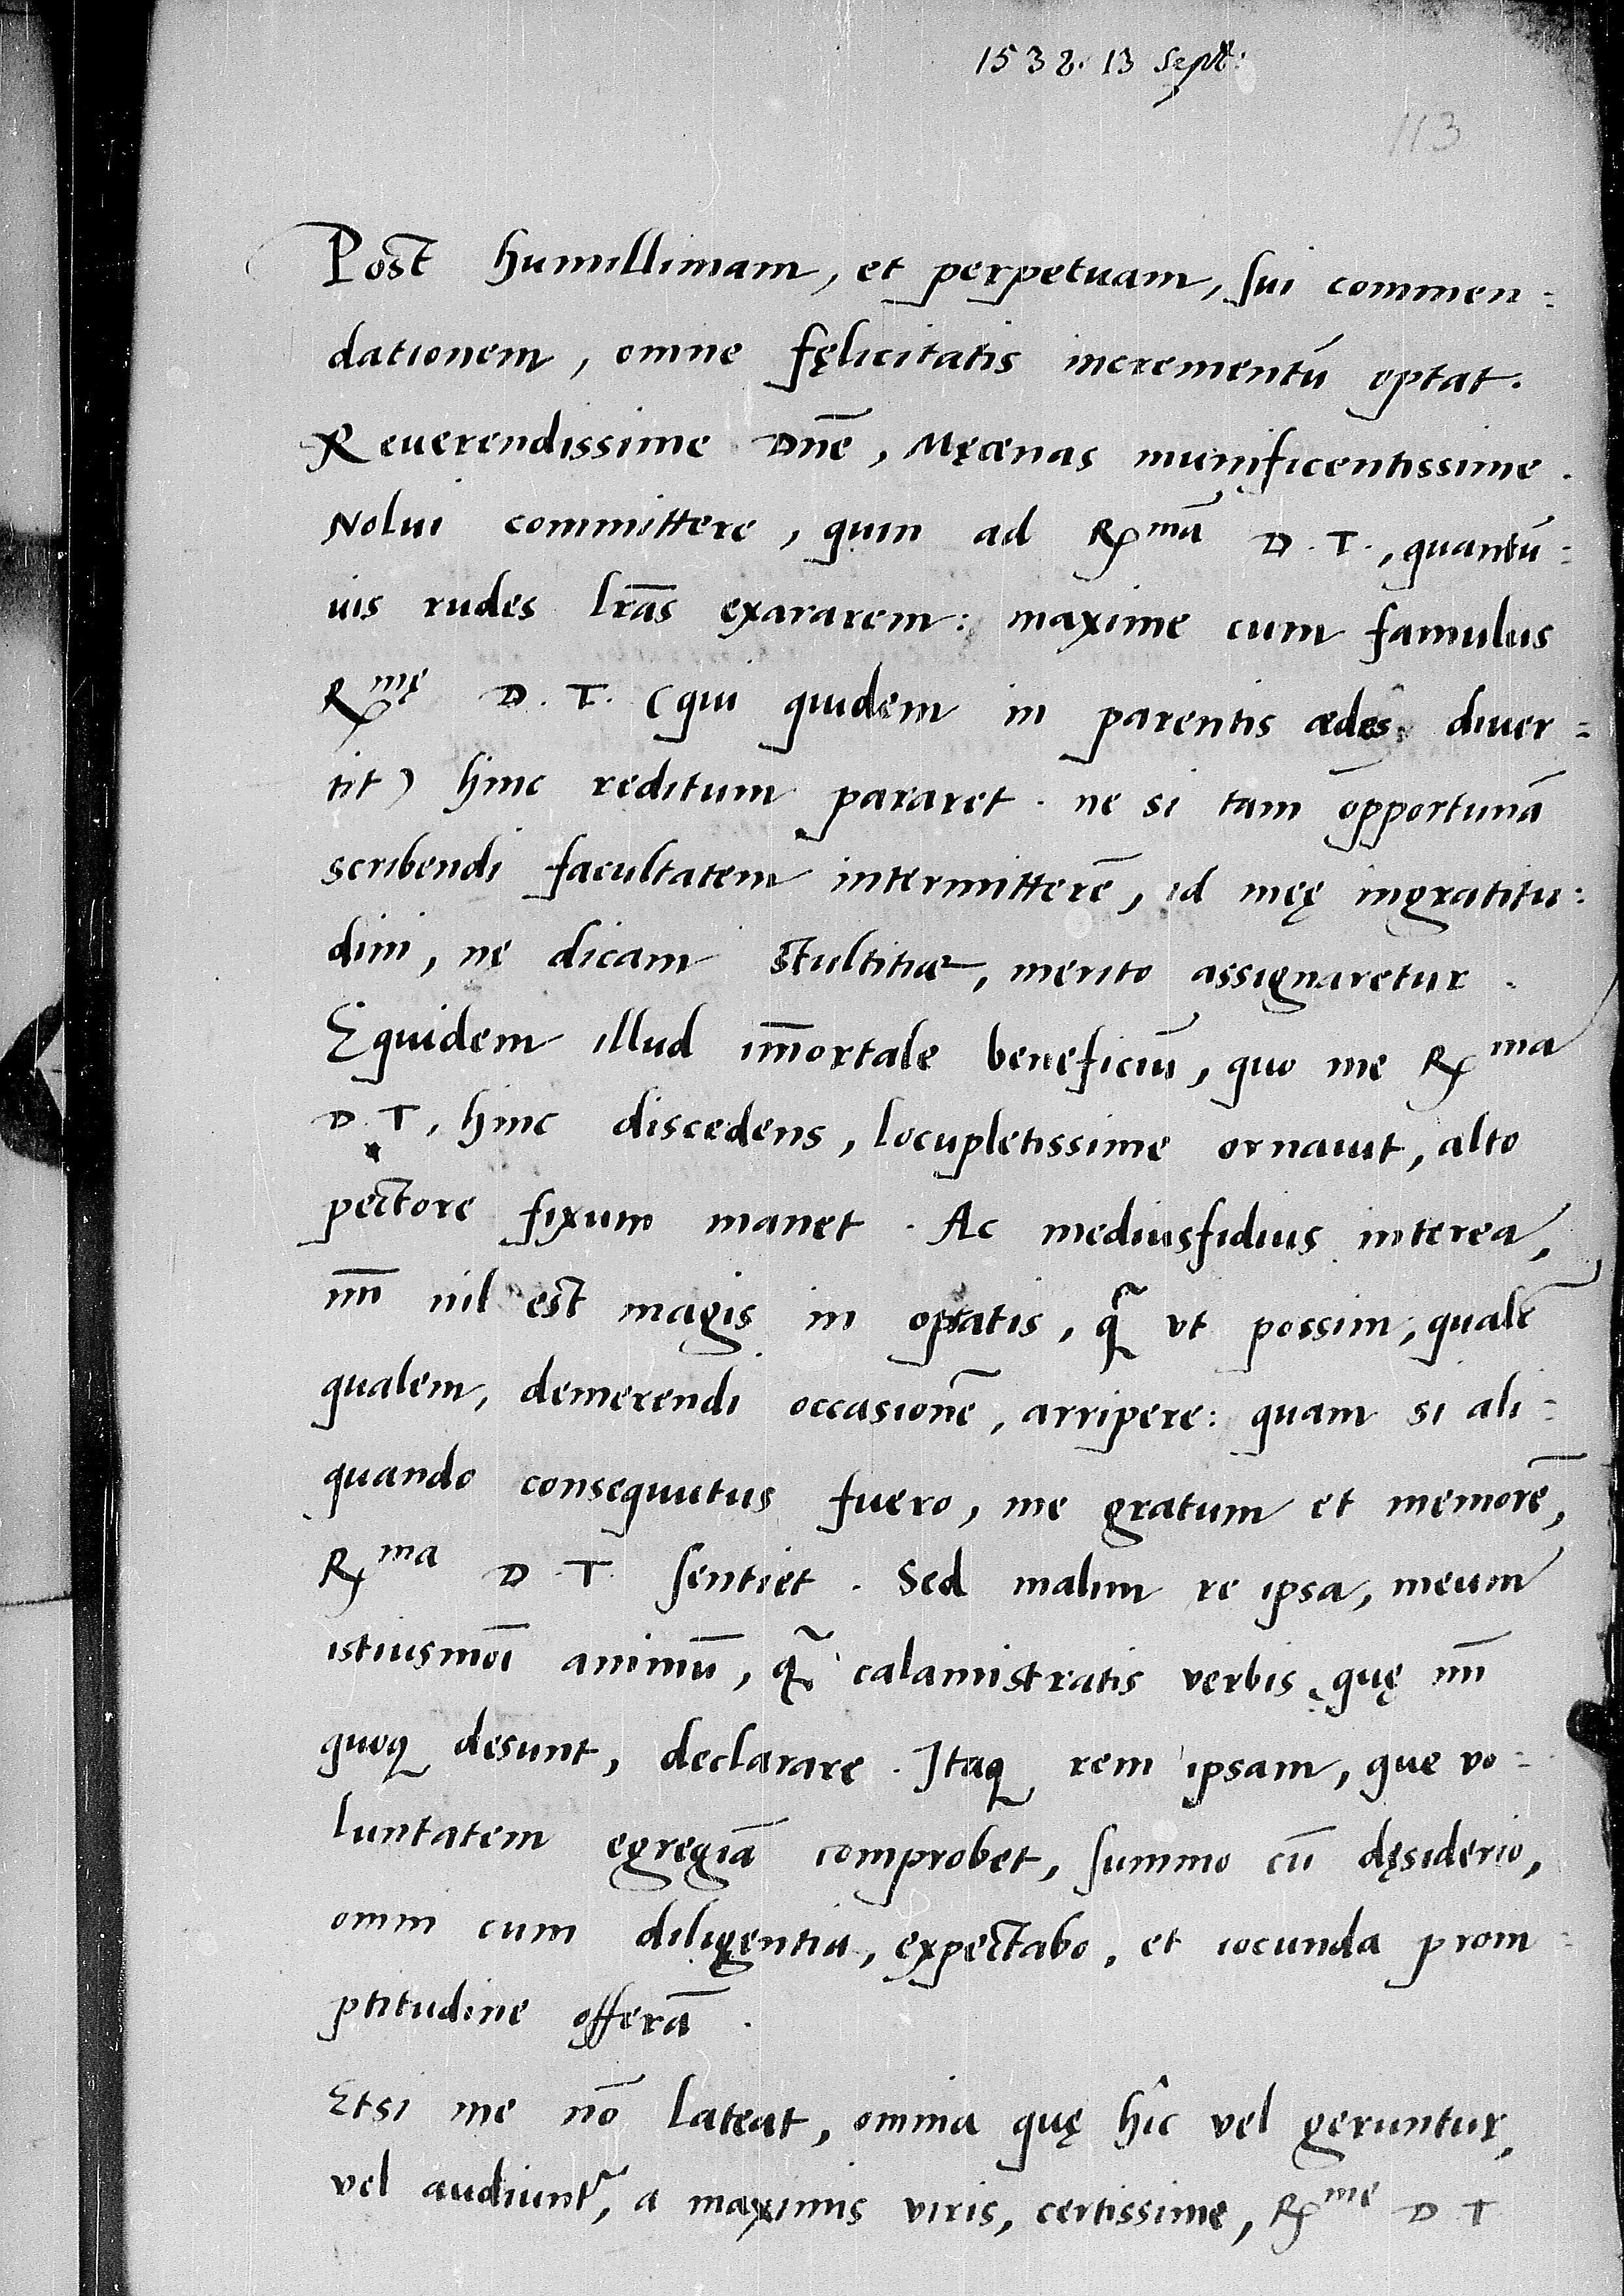 1538. 13 Sept:
113
Post humillimam, et perpetuam, sui commen=
dationem, omne fęlicitatis incrementū optat.
Reuerendissime Dn̄e, Męcenas munificentissime.
Nolui committere, quin ad Rᵐᵃ̄ D. T., quantū=
uis rudes lr̄as exararem: maxime cum famulus
Rᵐᵉ̨ D. T. (qui quidem in parentis ædes diuer=
tit) hinc reditum pararet. ne si tam opportunā
scribendi facultatem intermitterē, id meę ingratitu:
dini, nę dicam stultitiæ, merito assignaretur.
Equidem illud im̄ortale beneficiū, quo me Rᵐᵃ
D. T, hinc discedens, locupletissime ornauit, alto
pectore fixum manet. Ac mediusfidius interea,
m̄ nil est magis in optatis, q̃ vt possim, qualē
qualem, demerendi occasionē, arripere: quam si ali=
quando consequutus fuero, me gratum et memorē,
Rᵐᵃ D. T. sentiet. Sed malim re ipsa, meum
istiusmōi animū, q̃ calamistratis verbis, quę m̄
quoq desunt, declarare. Itaq rem ipsam, que vo=
luntatem egregiā comprobet, summo cū dęsiderio,
omni cum diligentia, expectabo, et iocunda prom=
ptitudine offerā.
Etsi me nō lateat, omnia quę hîc vel geruntur,
vel audiunt᷑, a maximis viris, certissime, Rᵐᵉ D T